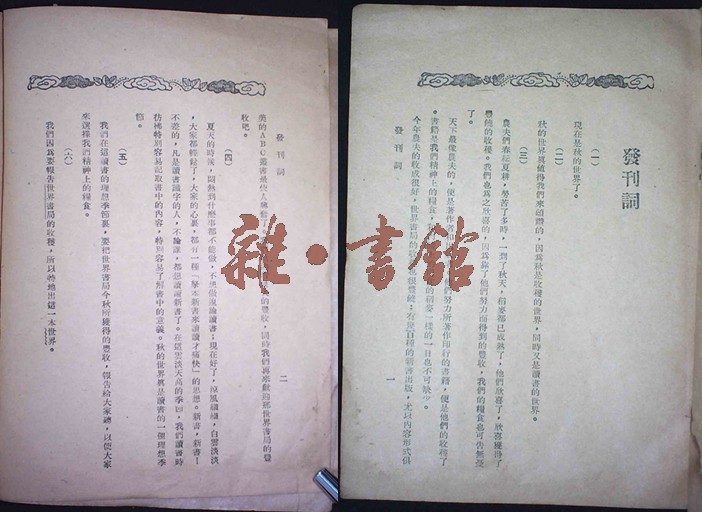 發刊詞
(一)
現在是秋的世界了。
(二)
秋的世界眞値得我們來頌讚的,因爲秋是收穫的世界,同時又是讀書的世界。
(三)
農夫們春耘夏耕,勞苦了多時,一到了秋天,稻麥都已成熟了,他們欣喜了,欣喜獲得了
豐饒的收穫。我們也爲之欣喜的,因爲靠了他們努力而得到的豐收,我們的糧食也可吿無憂
了。
天下最像農夫的,便是著作者和 努力所著作印行的書籍,便是他們的收穫了
。書籍是我們精神上的糧食, 稻麥一樣的一日也不可缺少。
今年農夫的收成很好,世界書局的收 很豐饒;有幾百種的新書出版,尤以內容形式俱
發刊詞
一
發刊詞
二
美的ABC叢書最使人 的豐收,同時我們再來 世界書局的豐
收吧。
(四)
夏天的時候,悶熱到什麼事都不能做,不要說是論讀書;現在好了,涼風 ,白雲淡淡
,大家都輕鬆了,大家的心裏,都有一種「拿本新書來讀讀才痛快」的思想。新書,新書!
不差的,凡是讀書識字的人,不論誰,都想讀讀新書了。在這雲淡天高的季節,我們讀書時
彷彿特別容易記取書中的內容,特別容易了解書中的意義。秋的世界眞是讀書的一個理想季
節。
(五)
我們在這讀書的理想季節裏,要把世界書局今秋所獲得的豐收,報吿給大家聽,以便大家
來選擇我們精神上的糧食。
(六)
我們因爲要報吿世界書局的收穫,所以特地出這一本世界。
雜·書館